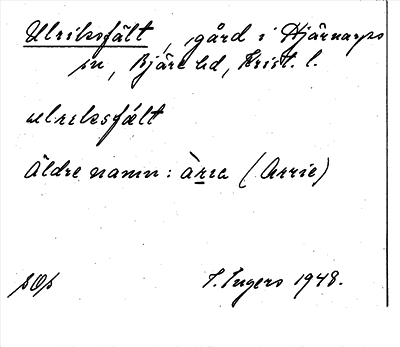 Ulriksfält, gård i Hjärnarps
sn, Bjäre hd, Krist. l.
ulriksfált
Äldre namn: àrıa (Arrie)
I. Ingers 1948.